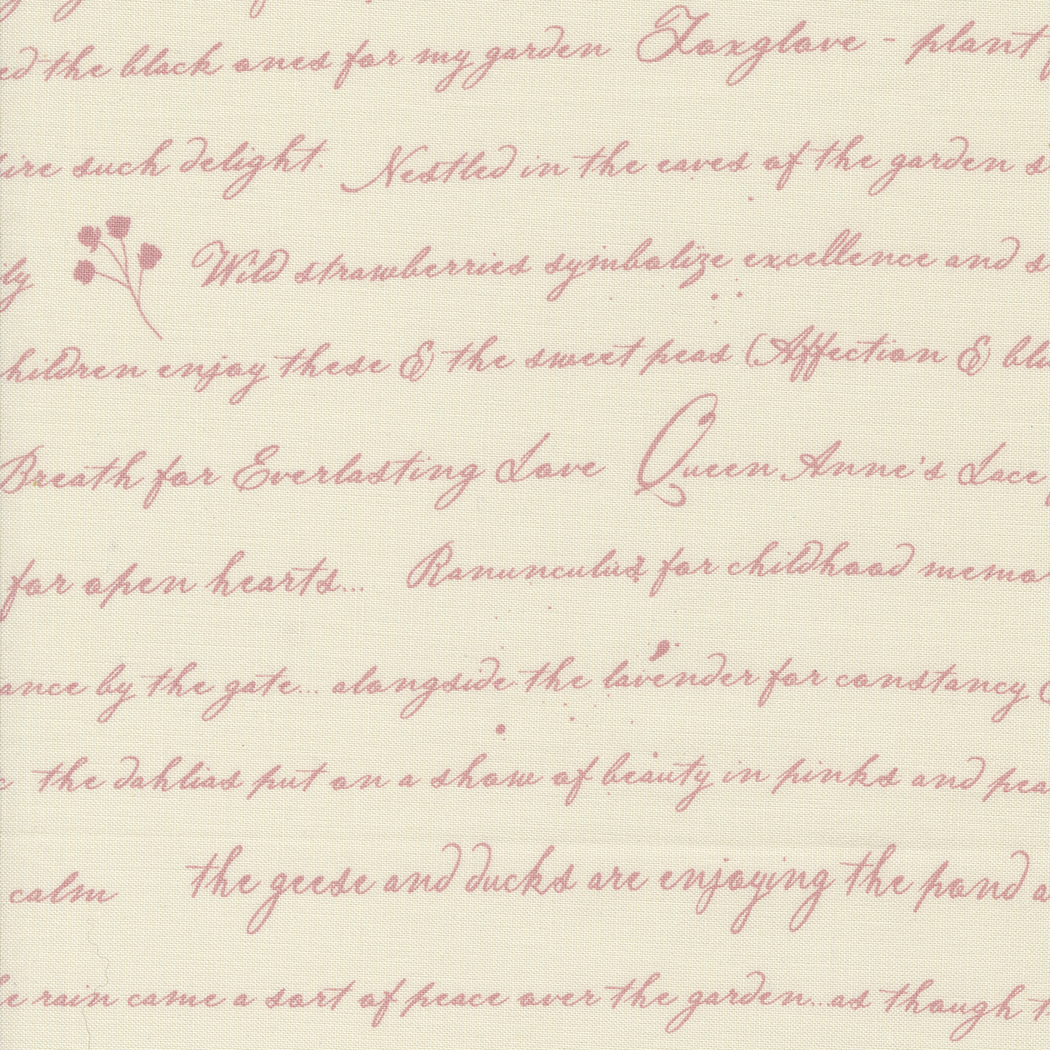 ed the black ones for my garden Foxglove - plant
ire such delight. Nestled in the eaves of the garden s
ily Wild strawberries symbolize excellence and s
hildren enjoy these & the sweet peas (Affection & blu
Breath for Everlasting Love Queen Anne's Lace
for open hearts... Ranunculus for childhood memo
ance by the gate... alongside the lavender for constancy
the dahlias put on a show of beauty in pinks and pea
calm the geese and ducks are enjoying the pond a
e rain came a sort of peace over the garden...as though t